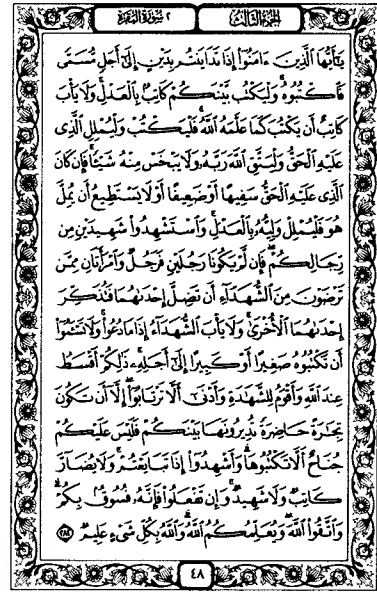 الجزء الثالث
٢ سورة البقرة
يَٰٓأَيُّهَا ٱلَّذِينَ ءَامَنُوٓاْ إِذَا تَدَايَنتُم بِدَيْنٍ إِلَىٰٓ أَجَلٍ مُّسَمًّى
فَٱكْتُبُوهُ ۚ وَلْيَكْتُب بَّيْنَكُمْ كَاتِبٌۢ بِٱلْعَدْلِ ۚ وَلَا يَأْبَ
كَاتِبٌ أَن يَكْتُبَ كَمَا عَلَّمَهُ ٱللَّهُ ۚ فَلْيَكْتُبْ وَلْيُمْلِلِ ٱلَّذِى
عَلَيْهِ ٱلْحَقُّ وَلْيَتَّقِ ٱللَّهَ رَبَّهُۥ وَلَا يَبْخَسْ مِنْهُ شَيْـًٔا ۚ فَإِن كَانَ
ٱلَّذِى عَلَيْهِ ٱلْحَقُّ سَفِيهًا أَوْ ضَعِيفًا أَوْ لَا يَسْتَطِيعُ أَن يُمِلَّ
هُوَ فَلْيُمْلِلْ وَلِيُّهُۥ بِٱلْعَدْلِ ۚ وَٱسْتَشْهِدُواْ شَهِيدَيْنِ مِن
رِّجَالِكُمْ ۖ فَإِن لَّمْ يَكُونَا رَجُلَيْنِ فَرَجُلٌ وَٱمْرَأَتَانِ مِمَّن
تَرْضَوْنَ مِنَ ٱلشُّهَدَآءِ أَن تَضِلَّ إِحْدَىٰهُمَا فَتُذَكِّرَ
إِحْدَىٰهُمَا ٱلْأُخْرَىٰ ۚ وَلَا يَأْبَ ٱلشُّهَدَآءُ إِذَا مَا دُعُواْ ۚ وَلَا تَسْـَٔمُوٓاْ
أَن تَكْتُبُوهُ صَغِيرًا أَوْ كَبِيرًا إِلَىٰٓ أَجَلِهِۦ ۚ ذَٰلِكُمْ أَقْسَطُ
عِندَ ٱللَّهِ وَأَقْوَمُ لِلشَّهَٰدَةِ وَأَدْنَىٰٓ أَلَّا تَرْتَابُوٓاْ ۖ إِلَّآ أَن تَكُونَ
تِجَٰرَةً حَاضِرَةً تُدِيرُونَهَا بَيْنَكُمْ فَلَيْسَ عَلَيْكُمْ
جُنَاحٌ أَلَّا تَكْتُبُوهَا ۗ وَأَشْهِدُوٓاْ إِذَا تَبَايَعْتُمْ ۚ وَلَا يُضَآرَّ
كَاتِبٌ وَلَا شَهِيدٌ ۚ وَإِن تَفْعَلُواْ فَإِنَّهُۥ فُسُوقٌۢ بِكُمْ ۗ
وَٱتَّقُواْ ٱللَّهَ ۖ وَيُعَلِّمُكُمُ ٱللَّهُ ۗ وَٱللَّهُ بِكُلِّ شَىْءٍ عَلِيمٌ ٢٨٢
٤٨